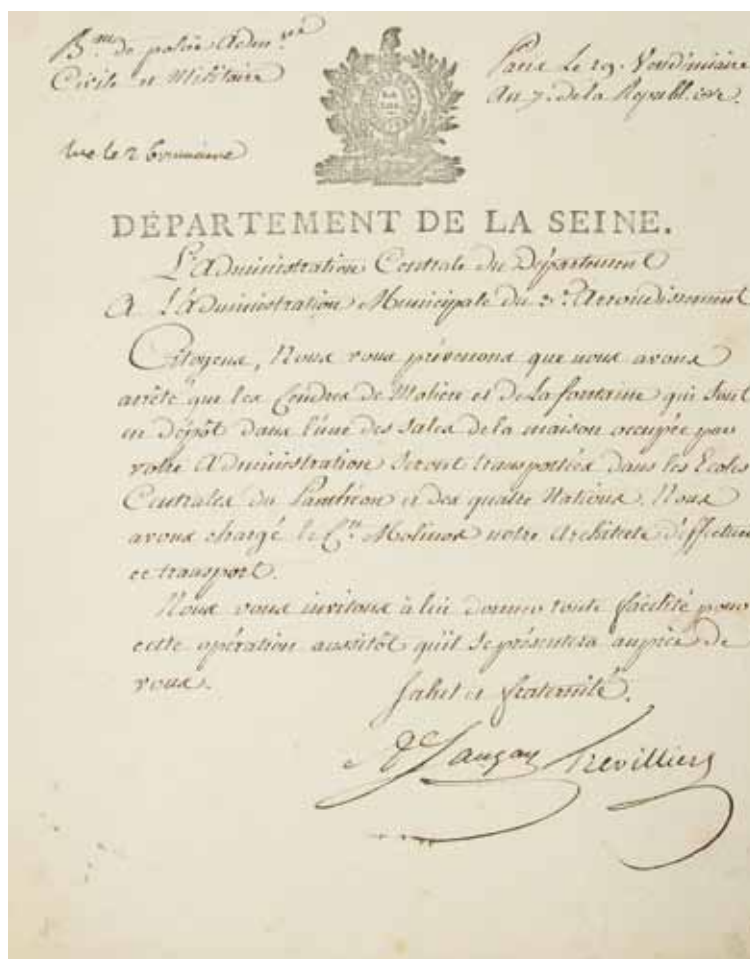 B.au de police Adm.ve
Civile et Militaire
Paris Le 29. Vendémiaire
An 7. de la Républ.que
Lue le 2 Brumaire
LA
LOI
DÉPARTEMENT DE LA SEINE.
L'Administration Centrale du Département
A L'Administration Municipale du 3.e Arrondissement
Citoyens, Nous vous prévenons que nous avons
arrêté que les Cendres de Moliere et de La fontaine qui sont
en dépôt dans l'une des sales de la maison occupée par
votre Administration seront transportées dans les Ecoles
Centrales du Panthéon et des quatre Nations. Nous
avons chargé le C.en Molinos notre Architecte d'effectuer
ce transport.
Nous vous invitons à lui donner toute facilité pour
cette opération aussitôt qu'il se présentera auprès de
vous.
Salut et fraternité.
Sauzay Trevilliers